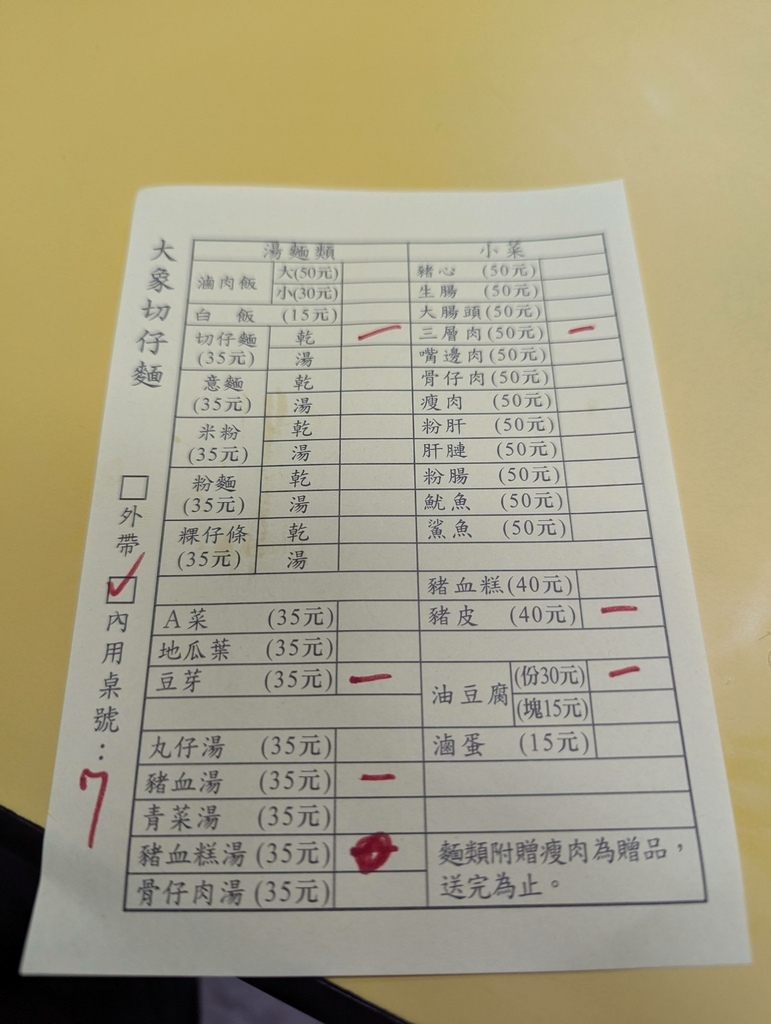 大象切仔麵
外帶
內用桌號：7
湯麵類
滷肉飯 大(50元)
小(30元)
白飯 (15元)
切仔麵 (35元) 乾 一
湯
意麵 (35元) 乾
湯
米粉 (35元) 乾
湯
粉麵 (35元) 乾
湯
粿仔條 (35元) 乾
湯
A菜 (35元)
地瓜葉 (35元)
豆芽 (35元) 一
丸仔湯 (35元)
豬血湯 (35元) 一
青菜湯 (35元)
豬血糕湯 (35元)
骨仔肉湯 (35元)
小菜
豬心 (50元)
生腸 (50元)
大腸頭 (50元)
三層肉 (50元) 一
嘴邊肉 (50元)
骨仔肉 (50元)
瘦肉 (50元)
粉肝 (50元)
肝腱 (50元)
粉腸 (50元)
魷魚 (50元)
鯊魚 (50元)
豬血糕 (40元)
豬皮 (40元) 一
油豆腐 (份30元) 一
(塊15元)
滷蛋 (15元)
麵類附贈瘦肉為贈品，
送完為止。